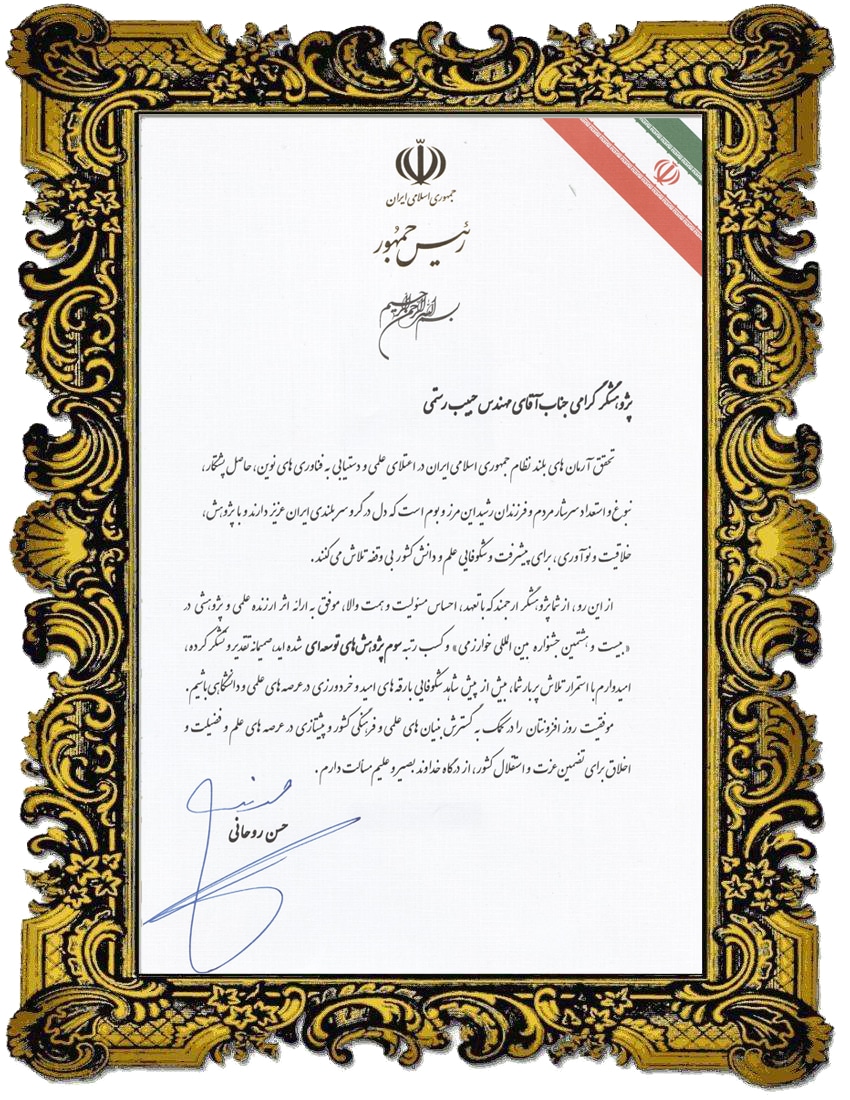 جمهوری اسلامی ایران
رئیس جمهور
بسم الله الرحمن الرحیم
پژوهشگر گرامی جناب آقای مهندس حبیب رستمی
تحقق آرمان های بلند نظام جمهوری اسلامی ایران در اعتلای علمی و دستیابی به فناوری های نوین، حاصل پشتکار،
نبوغ و استعداد سرشار مردم و فرزندان رشید این مرز و بوم است که دل در گرو سربلندی ایران عزیز دارند و با پژوهش،
خلاقیت و نوآوری، برای پیشرفت و شکوفایی علم و دانش کشور بی وقفه تلاش می کنند.
از این رو، از شما پژوهشگر ارجمند که با تعهد، احساس مسئولیت و همت والا، موفق به ارائه اثر ارزنده علمی و پژوهشی در
«بیست و هشتمین جشنواره بین المللی خوارزمی» و کسب رتبه سوم پژوهش های توسعه ای شده اید، صمیمانه تقدیر و تشکر کرده،
امیدوارم با استمرار تلاش پربار شما، بیش از پیش شاهد شکوفایی بارقه های امید و خردورزی در عرصه های علمی و دانشگاهی باشیم.
موفقیت روز افزونتان را در کمک به گسترش بنیان های علمی و فرهنگی کشور و پیشتازی در عرصه های علم و فضیلت و
اخلاق برای تضمین عزت و استقلال کشور، از درگاه خداوند بصیر و علیم مسألت دارم.
حسن روحانی